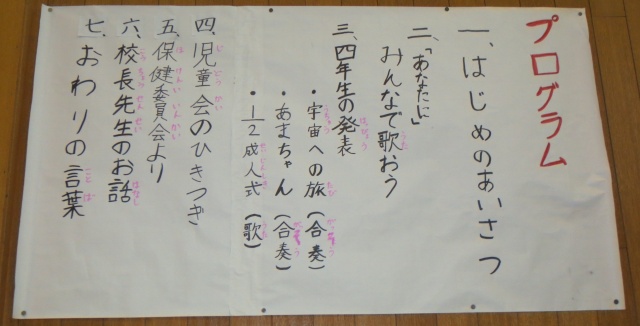 プログラム
一、はじめのあいさつ
二、「あなたに」
みんなで歌おう
三、四年生の発表
・宇宙への旅（合奏）
・あまちゃん（合奏）
・1/2成人式（歌）
四、児童会のひきつぎ
五、保健委員会より
六、校長先生のお話
七、おわりの言葉